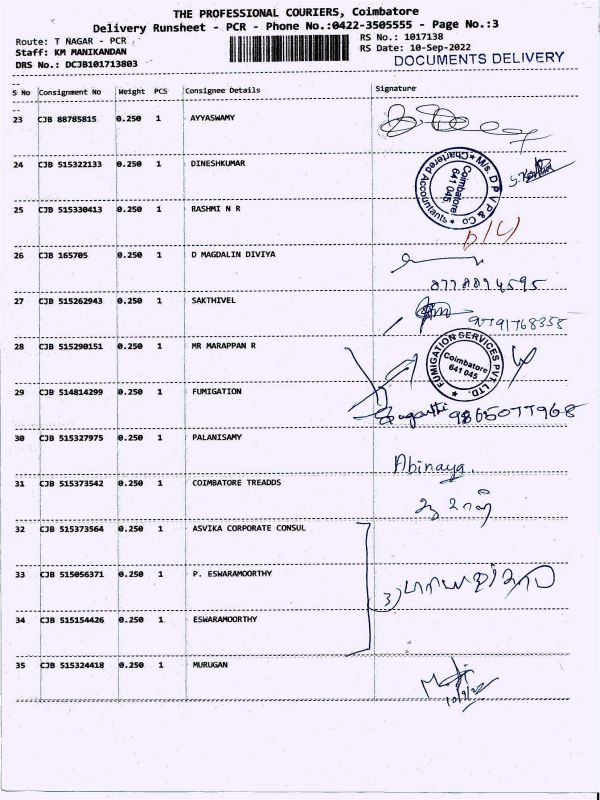 THE PROFESSIONAL COURIERS, Coimbatore
Delivery Runsheet - PCR - Phone No.:0422-3505555 - Page No.:3
Route: T NAGAR - PCR
RS No.: 1017138
Staff: KM MANIKANDAN
RS Date: 10-Sep-2022
DRS No.: DCJB101713803
DOCUMENTS DELIVERY
S No Consignment No Weight PCS Consignee Details Signature
23 CJB 88785815 0.250 1 AYYASWAMY
24 CJB 515322133 0.250 1 DINESHKUMAR
M/s. D P V P & Co
Chartered Accountants
Coimbatore
641 045
25 CJB 515330413 0.250 1 RASHMI N R
26 CJB 165705 0.250 1 D MAGDALIN DIVIYA
27 CJB 515262943 0.250 1 SAKTHIVEL
9791768358
28 CJB 515290151 0.250 1 MR MARAPPAN R
FUMIGATION SERVICES PVT. LTD.
Coimbatore
641 045
29 CJB 514814299 0.250 1 FUMIGATION
9865077968
30 CJB 515327975 0.250 1 PALANISAMY
Abinaya.
31 CJB 515373542 0.250 1 COIMBATORE TREADDS
32 CJB 515373564 0.250 1 ASVIKA CORPORATE CONSUL
33 CJB 515056371 0.250 1 P. ESWARAMOORTHY
3)
34 CJB 515154426 0.250 1 ESWARAMOORTHY
35 CJB 515324418 0.250 1 MURUGAN